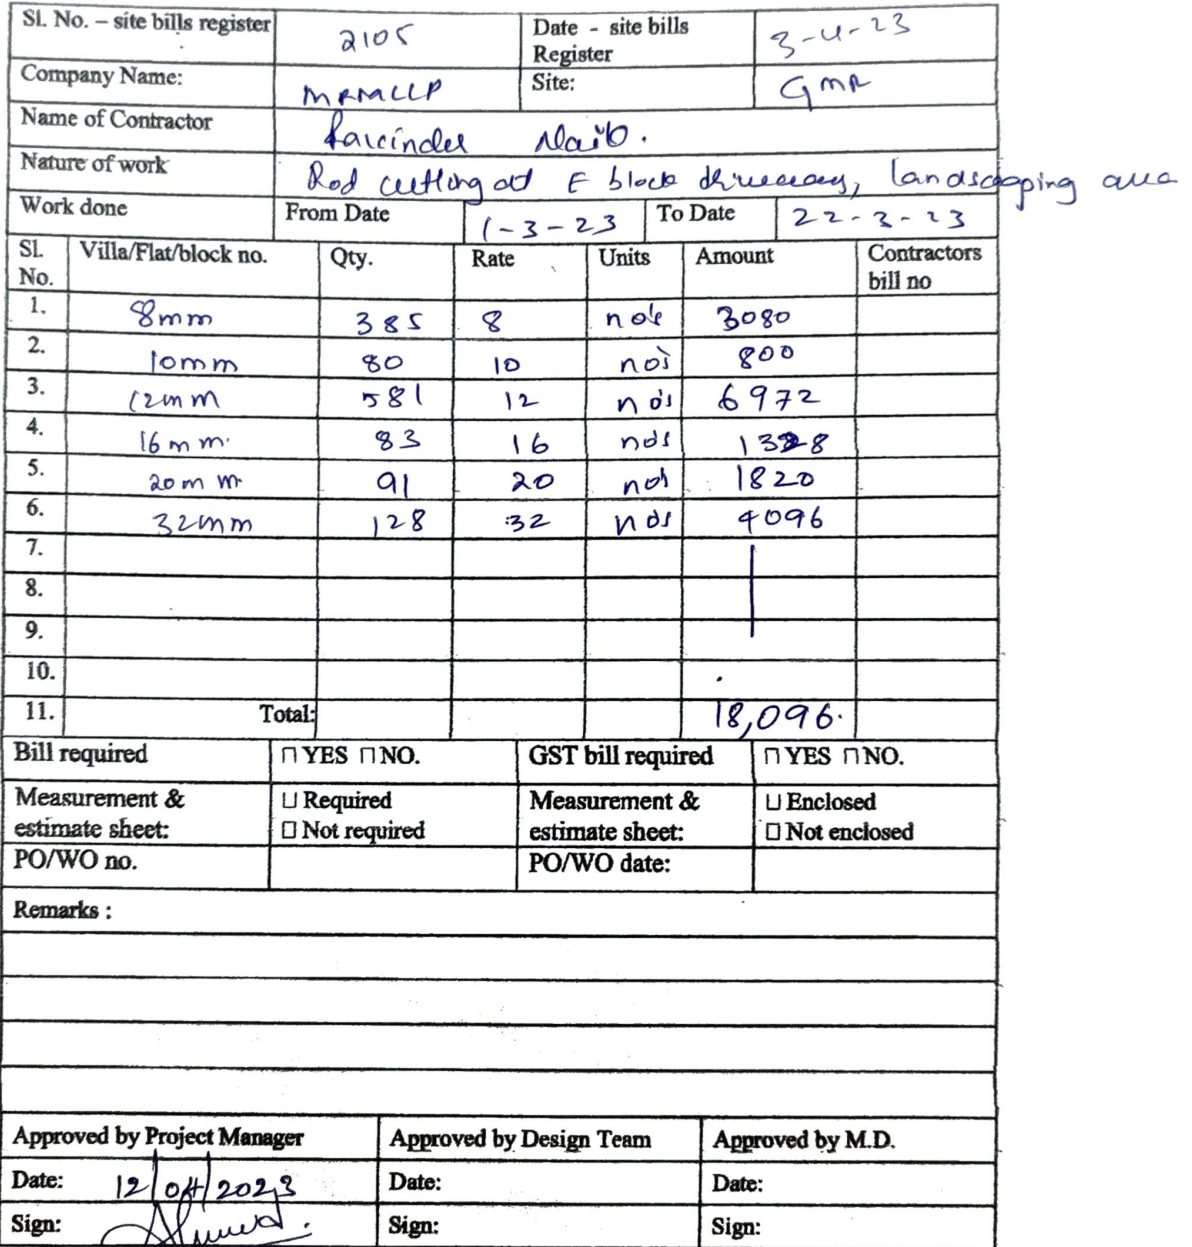 Sl. No. – site bills register 2105 Date - site bills Register 3-4-23
Company Name: MRMLLP Site: GMR
Name of Contractor
Nature of work Rod cutting at E block driveway, landscaping area
Work done From Date 1-3-23 To Date 22-3-23
Sl. No. Villa/Flat/block no. Qty. Rate Units Amount Contractors bill no
1. 8mm 385 8 no's 3080
2. 10mm 80 10 no's 800
3. 12mm 581 12 no's 6972
4. 16mm. 83 16 no's 1328
5. 20mm 91 20 no's 1820
6. 32mm 128 32 no's 4096
7.
8.
9.
10.
11. Total: 18,096.
Bill required YES NO. GST bill required YES NO.
Measurement & estimate sheet: Required Not required Measurement & estimate sheet: Enclosed Not enclosed
PO/WO no. PO/WO date:
Remarks :
Approved by Project Manager Approved by Design Team Approved by M.D.
Date: 12/04/2023 Date: Date:
Sign: Sign: Sign: